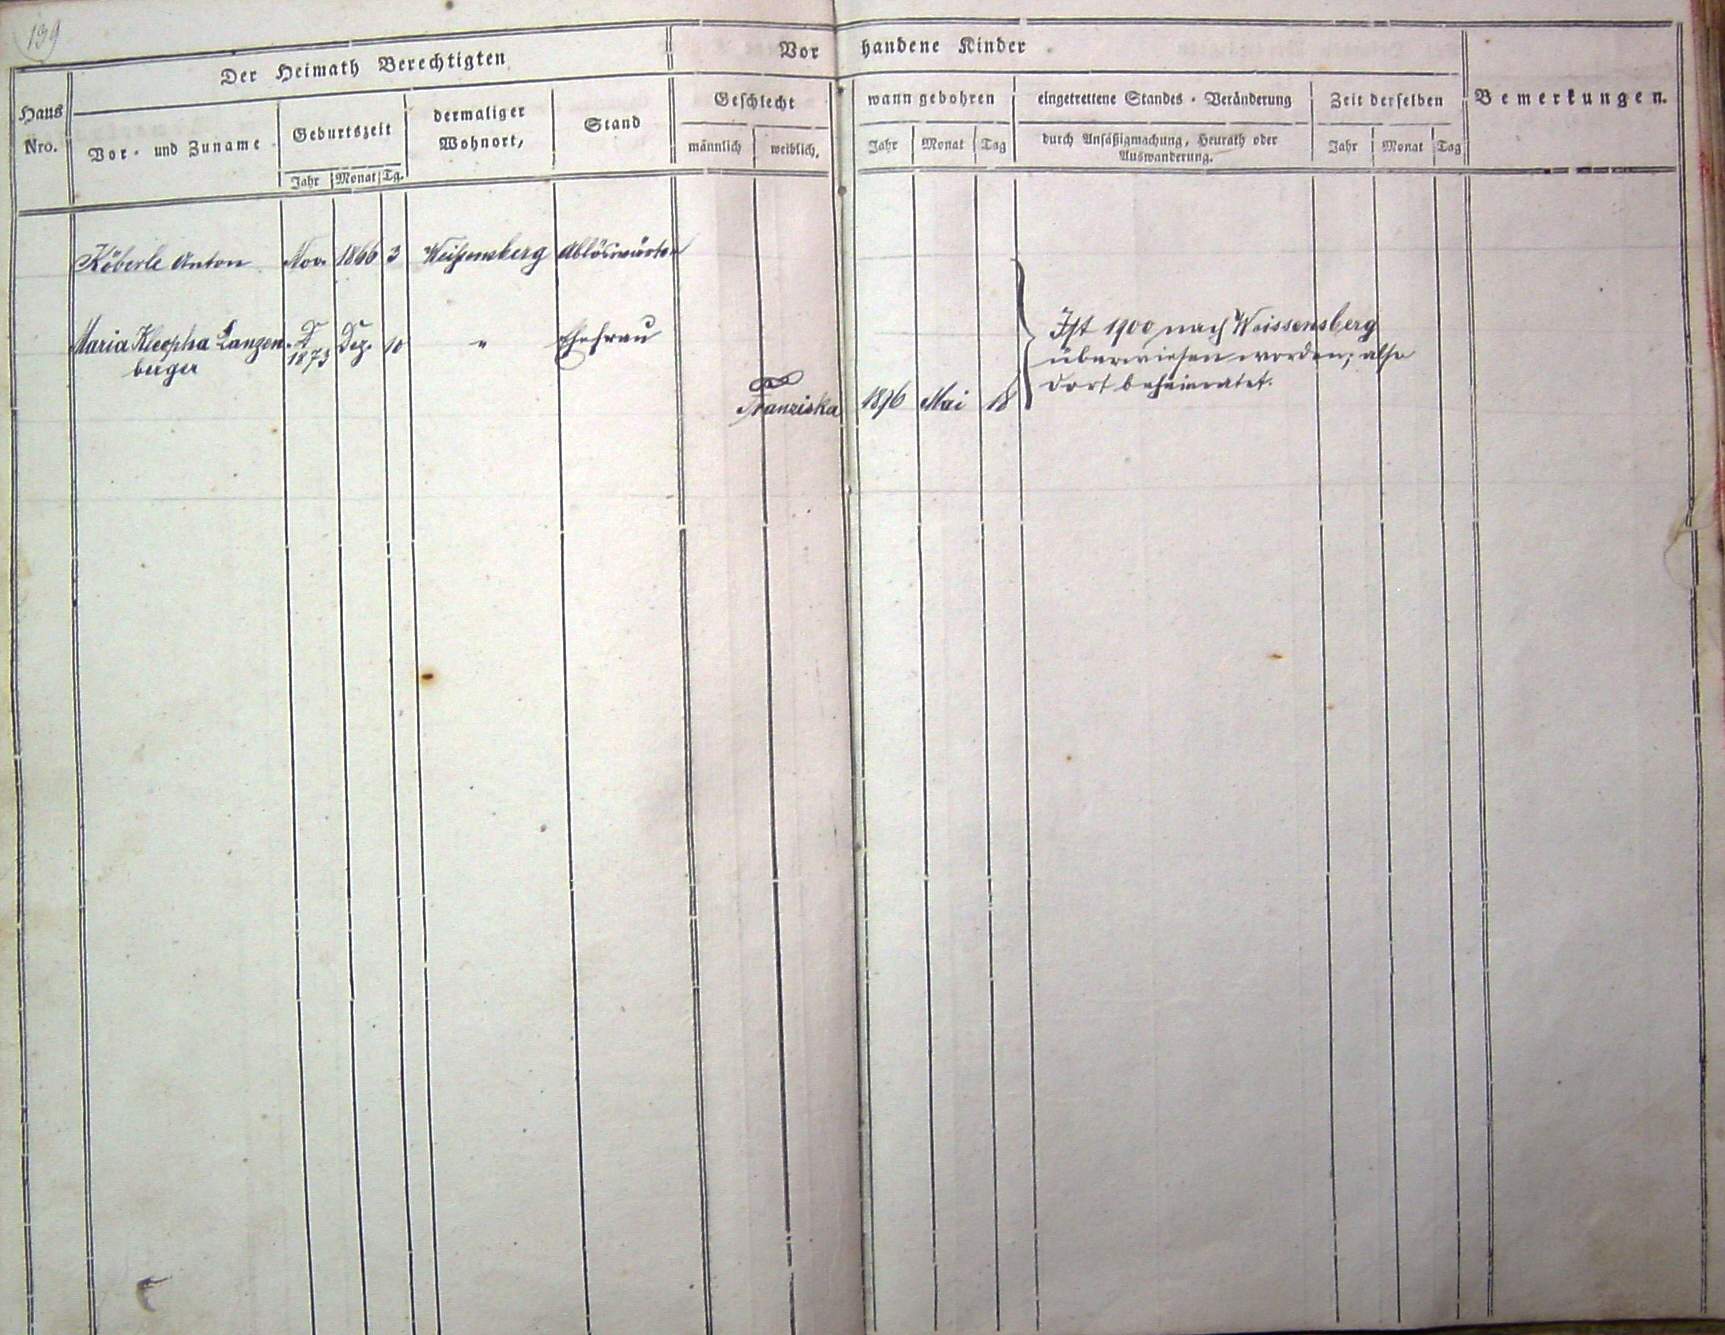 139
Der Heimath Berechtigten
Vor handene Kinder
Haus Nro.
Vor- und Zuname
Geburtszeit
Jahr Monat Tg.
dermaliger Wohnort,
Stand
Geschlecht
männlich weiblich.
wann gebohren
Jahr Monat Tag
eingetrettene Standes-Veränderung
durch Ansäßigmachung, Heurath oder
Auswanderung.
Zeit derselben
Jahr Monat Tag
Bemerkungen.
Köberle Anton Nov. 1866 3 Weißensberg Ablöswärter
Maria Kleopha Langen- 1873 Dez. 10 " Ehefrau
berger
Franziska 1896 Mai 18
Ist 1900 nach Weissensberg
überwiesen worden; also
dort beheimatet.